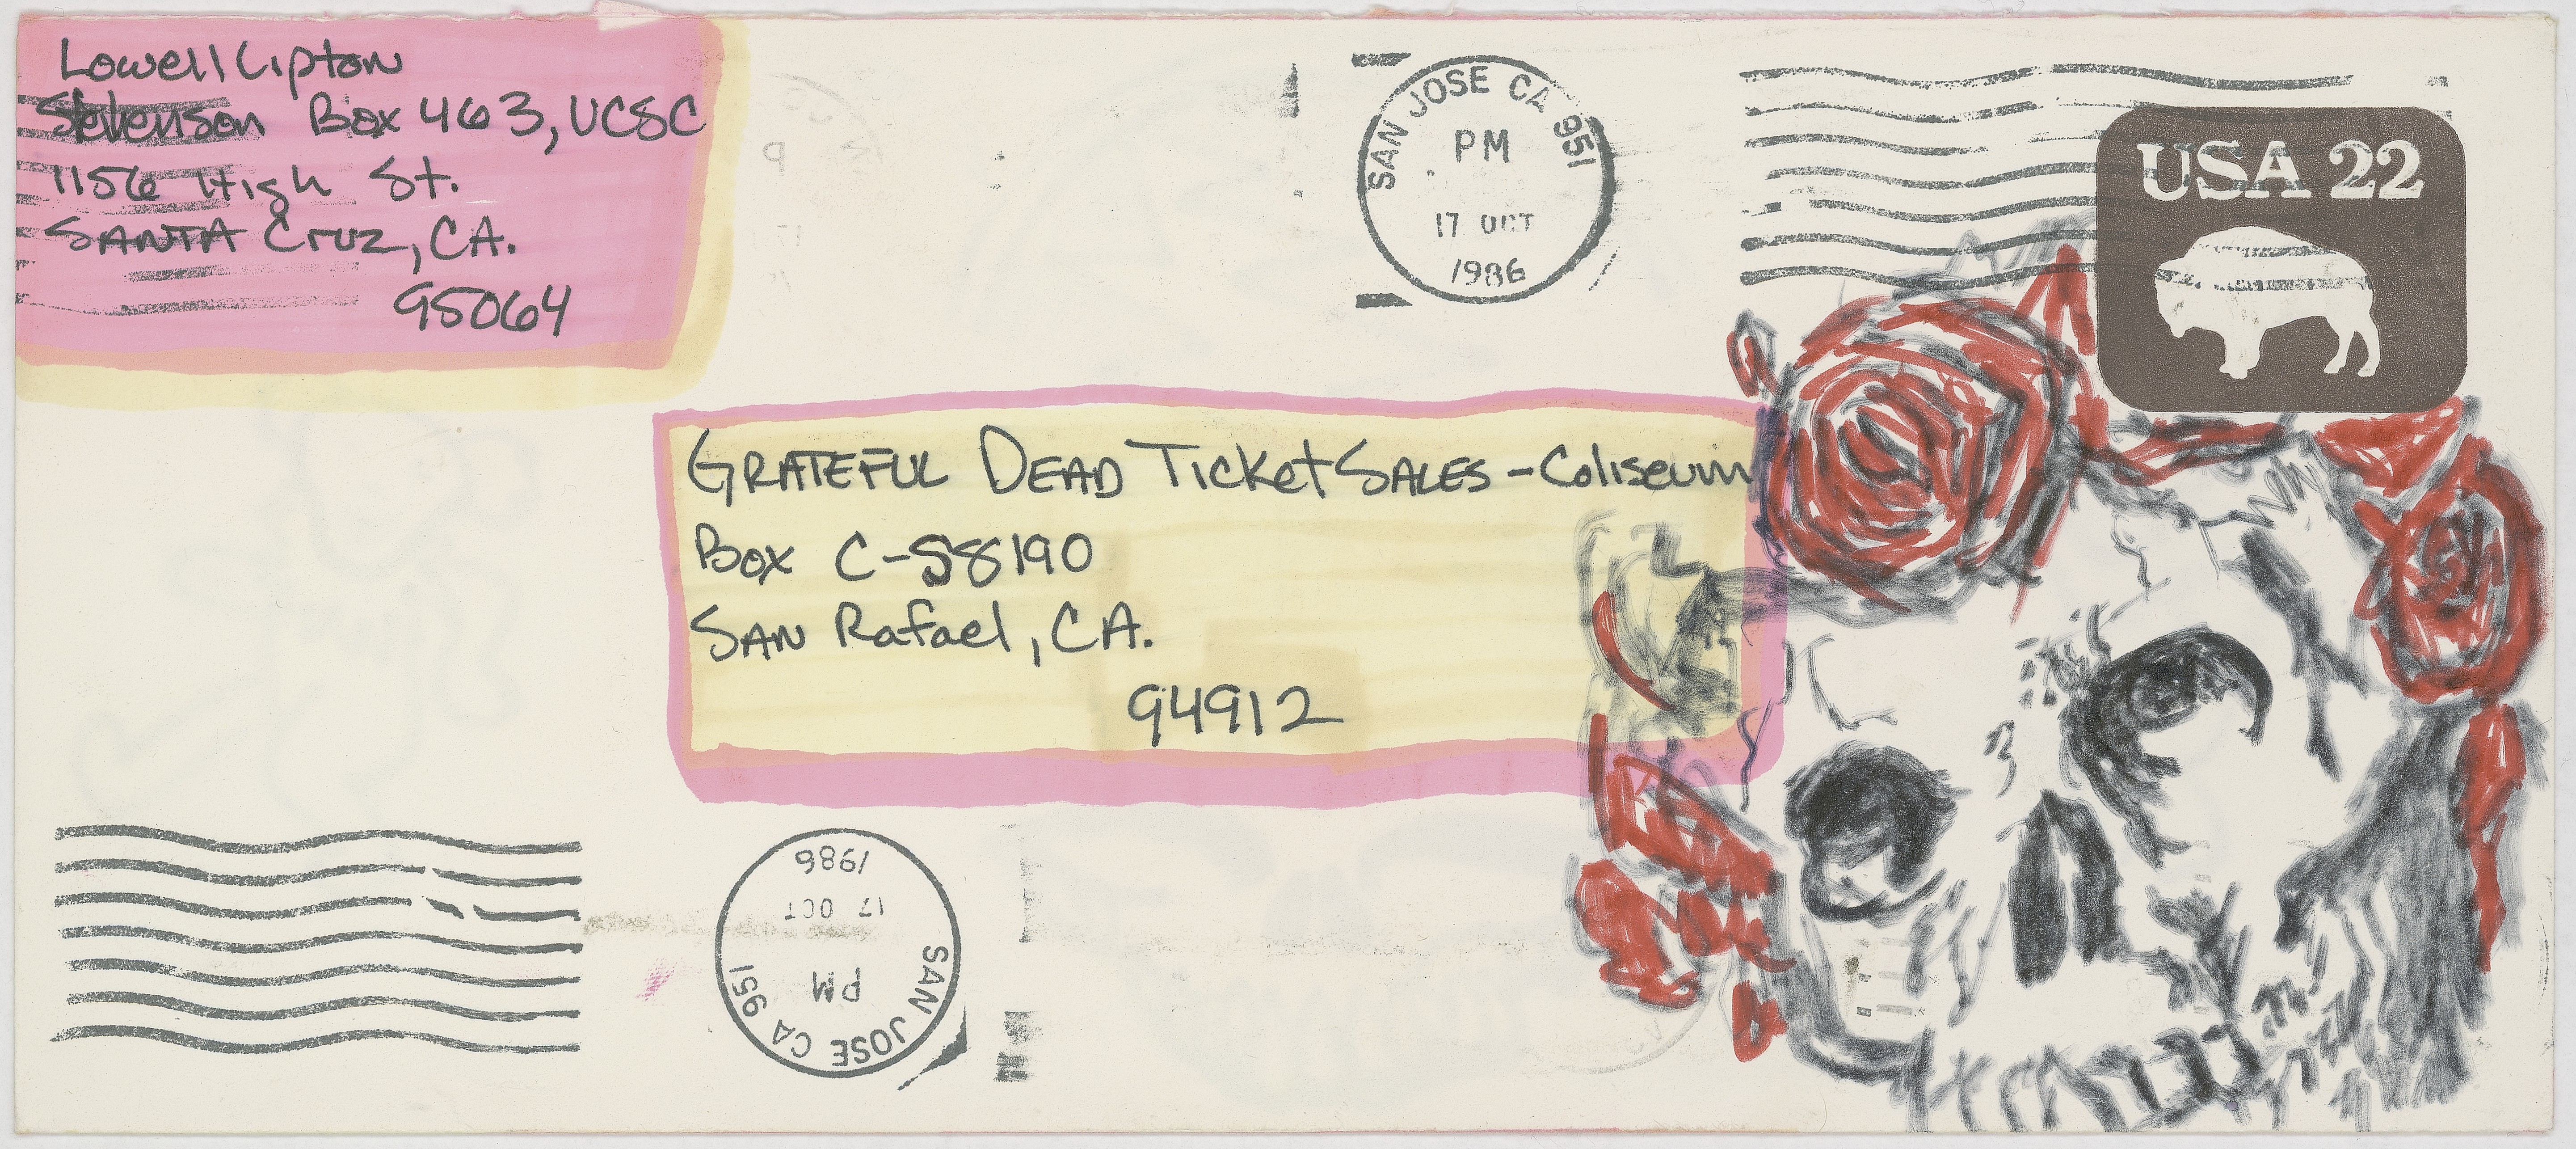 Lowell Lipton
Stevenson Box 463, UCSC
1156 High St.
SANTA Cruz, CA.
95064
SAN JOSE CA 951
PM
17 OCT
1986
USA 22
GRATEFUL DEAD TICKet SALES - Coliseum
Box C-S8190
SAN Rafael, CA.
94912
SAN JOSE CA 951
PM
17 OCT
1986